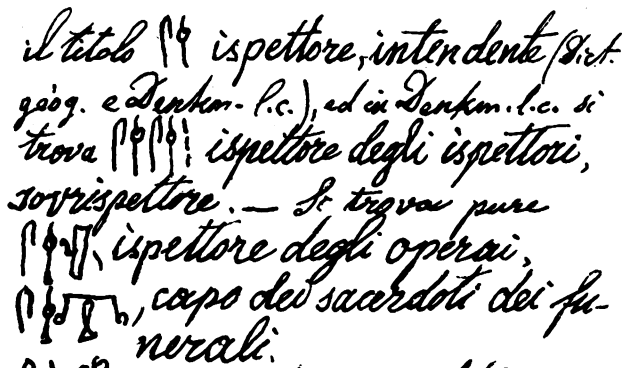 il titolo 𓋾𓌂 ispettore, intendente (Dict.
géog. e Denkm. l.c.), ed in Denkm. l.c. si
trova ispettore degli ispettori,
sovrispettore. — Si trova pure
ispettore degli operai,
, capo dei sacerdoti dei fu-
nerali.